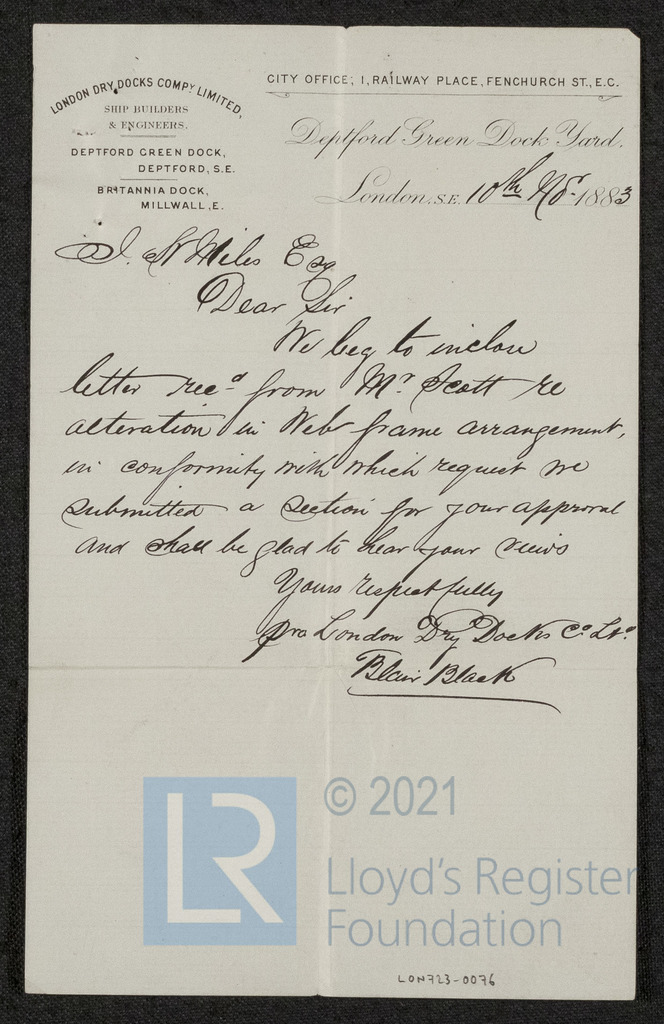 LONDON DRY DOCKS COMPY LIMITED,
SHIP BUILDERS
& ENGINEERS.
DEPTFORD GREEN DOCK,
DEPTFORD, S.E.
BRITANNIA DOCK,
MILLWALL, E.
CITY OFFICE; 1, RAILWAY PLACE, FENCHURCH ST., E.C.
Deptford Green Dock Yard.
London. S.E. 10th Nor 1883
J. W Miles Esq
Dear Sir
We beg to inclose
letter recd from Mr Scott re
alteration in Web frame arrangement,
in conformity with which request we
submitted a section for your approval
and shall be glad to hear your views
Yours respectfully
pro London Dry Docks Co Ltd
Blair Black
© 2021
LR
Lloyd's Register
Foundation
LON723-0076